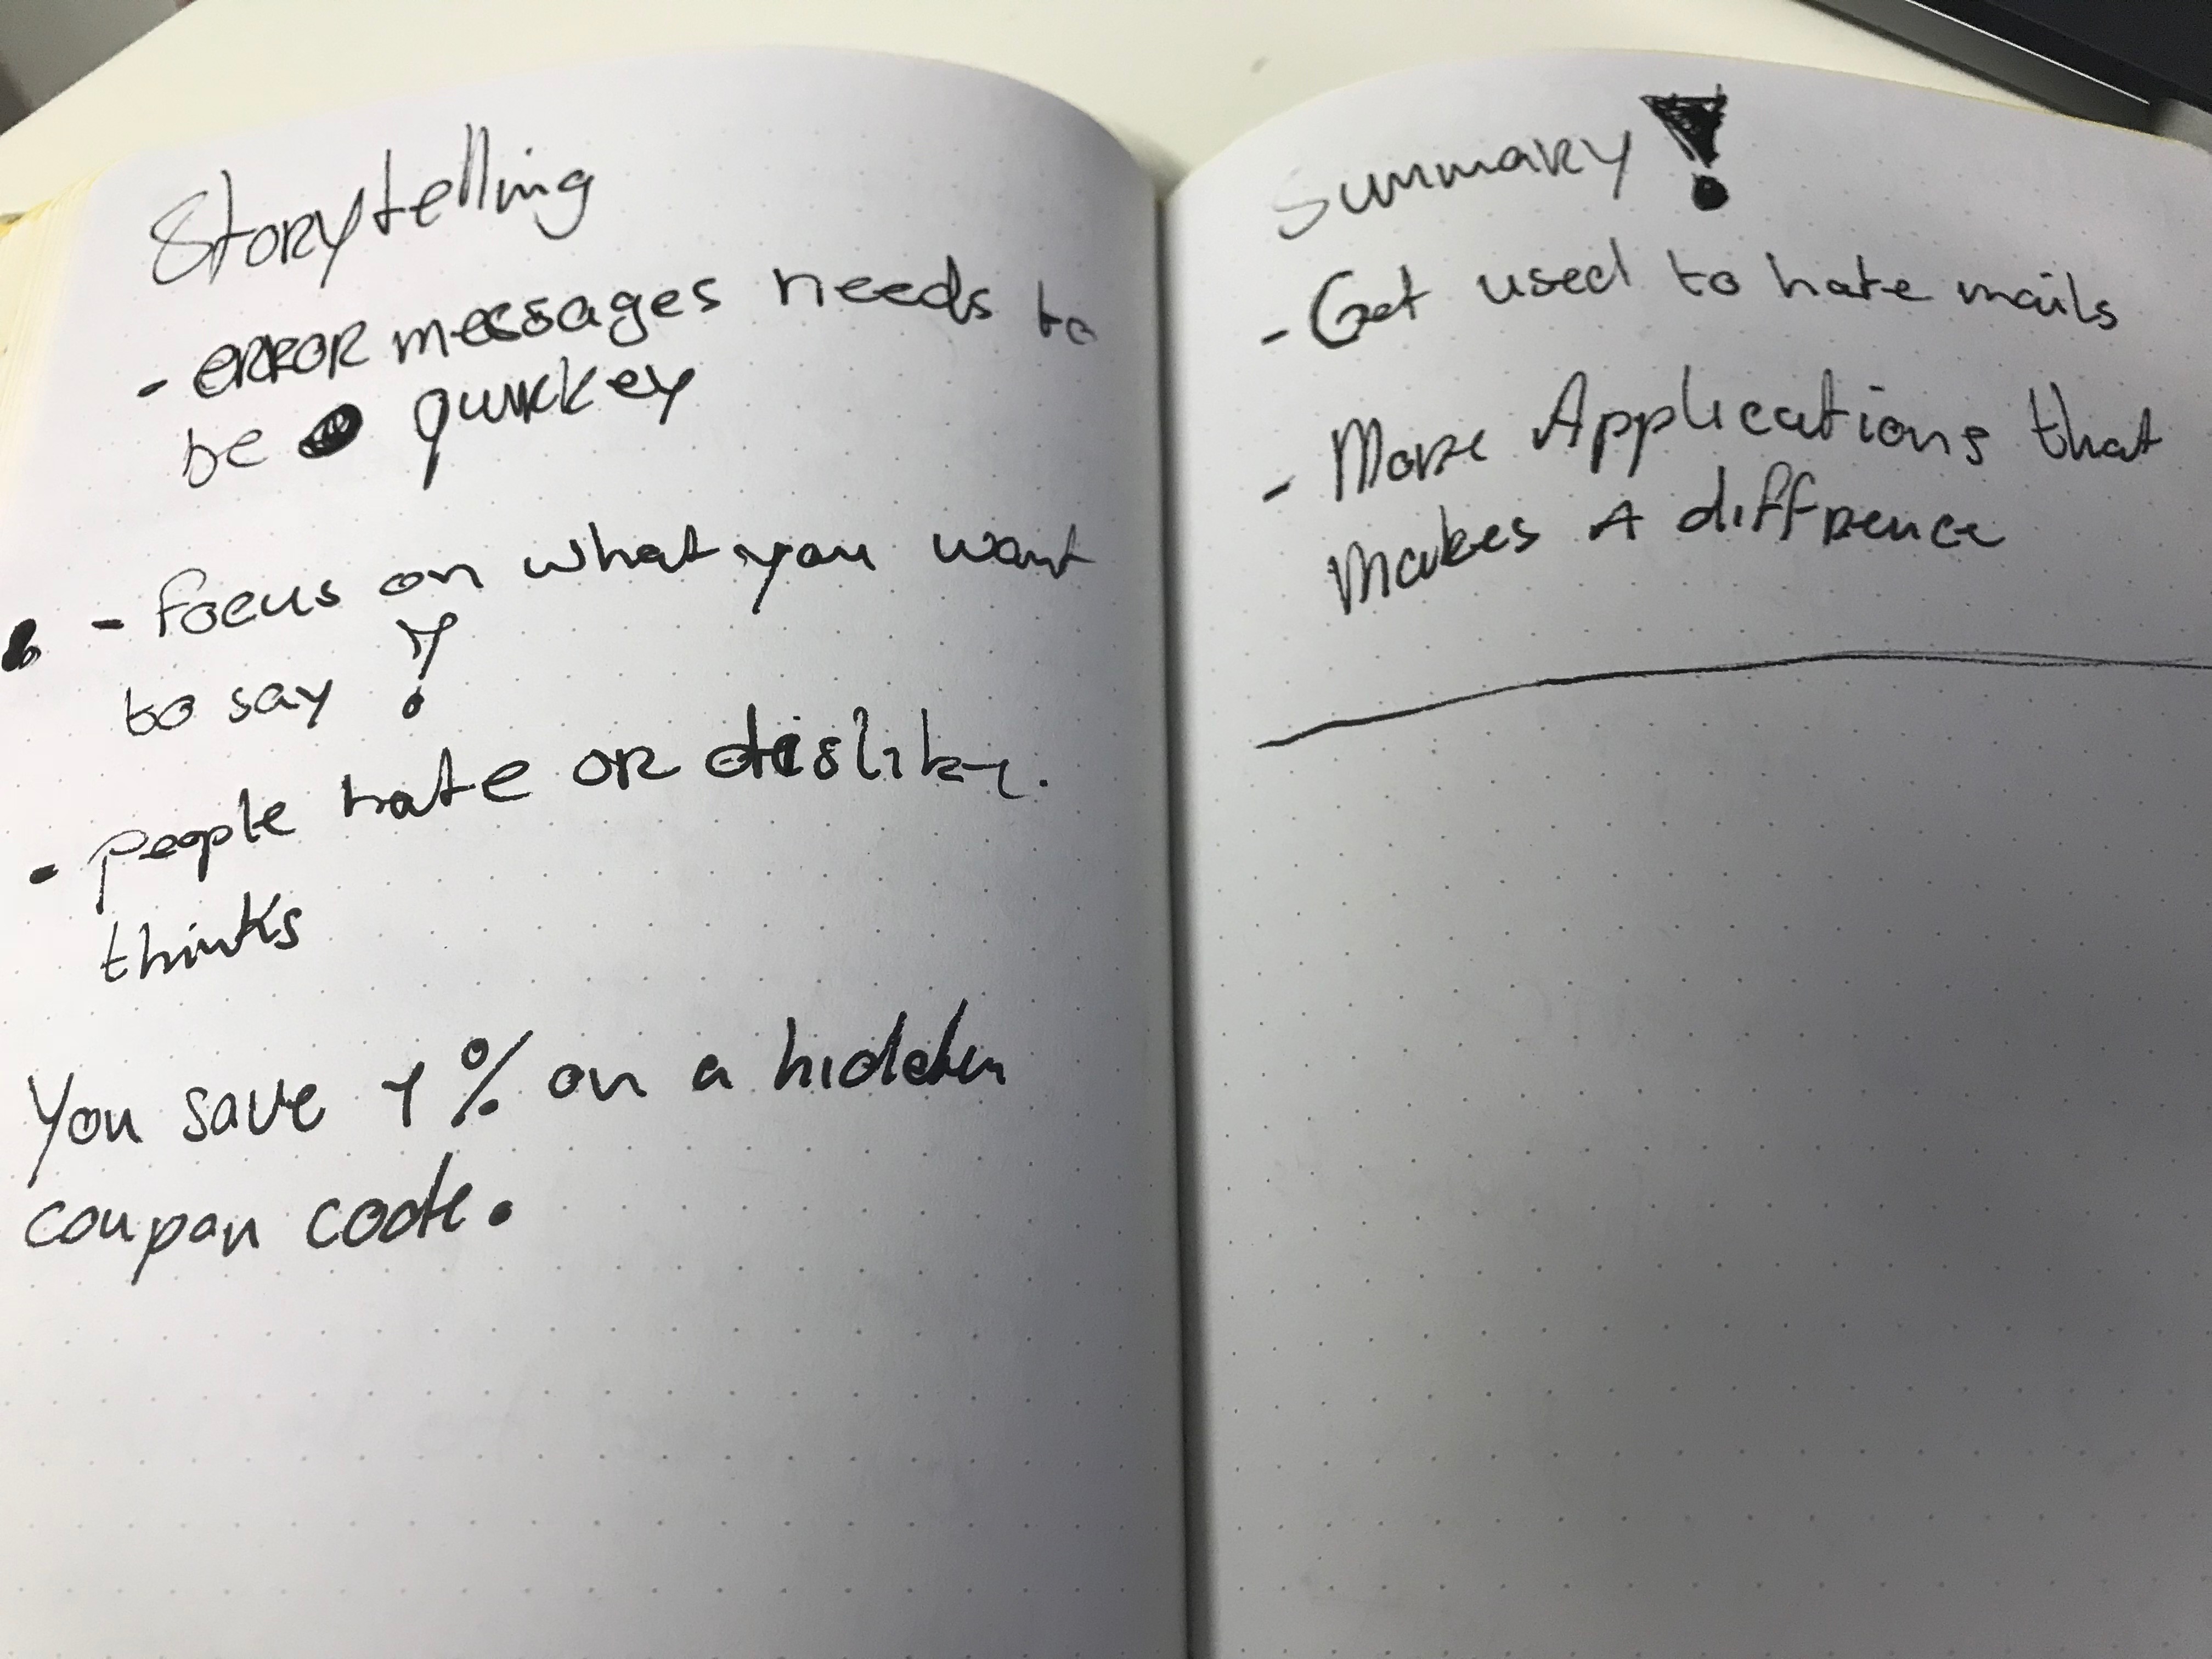 Storytelling
- error messages needs to
be quirkey
- focus on what you want
to say !
- people hate or dislike.
thinks
You save + % on a hidden
coupon code.
Summary !
- Get used to hate mails
- More Applications that
Makes A diffrence